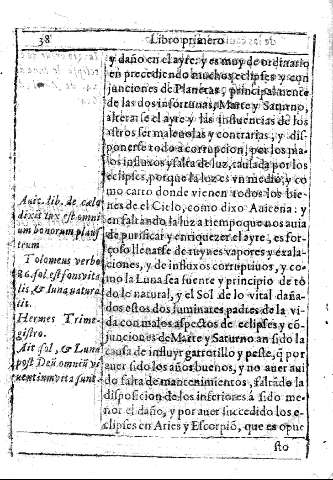 38
Libro primero
y daño en el ayre: y es muy de ordinario
en precediendo muchos eclipses y con
junciones de Planetas, principalmente
de las dos infortunas, Marte y Saturno,
alterarse el ayre y las influencias de los
astros ser malevolas y contrarias, y dis-
ponerse todo a corrupcion, por los ma
los influxos y falta de luz, causada por los
eclipses, porque la luz es vn medio, y co
mo carro donde vienen todos los bie-
nes de el Cielo, como dixo Auicena: y
en faltando la luz a tiempo que nos auia
de purificar y enriquezer el ayre, es for-
çoso llenarse de ruynes vapores y exala-
ciones, y de influxos corruptiuos, y co-
mo la Luna sea fuente y principio de to
do lo natural, y el Sol de lo vital daña-
dos estos dos luminares padres de la vi-
da con malos aspectos de eclipses y cō-
junciones de Marte y Saturno an sido la
causa de influyr garrotillo y peste, q̃ por
auer sido los años buenos, y no auer aui
do falta de mantenimientos, faltādo la
disposicion de los inferiores à sido me-
nor el daño, y por auer succedido los e-
clipses en Aries y Escorpiō, que es opue
sto
Auic. lib. de cælo
dixit lux est omni
um bonorum plaus
trum
Tolomeus verbo
86. sol est fons vita
lis & luna natura
lit.
Hermes Trime-
gistro.
Ait sol, & Luna
post Deū omniū vi
uentium vita sunt.